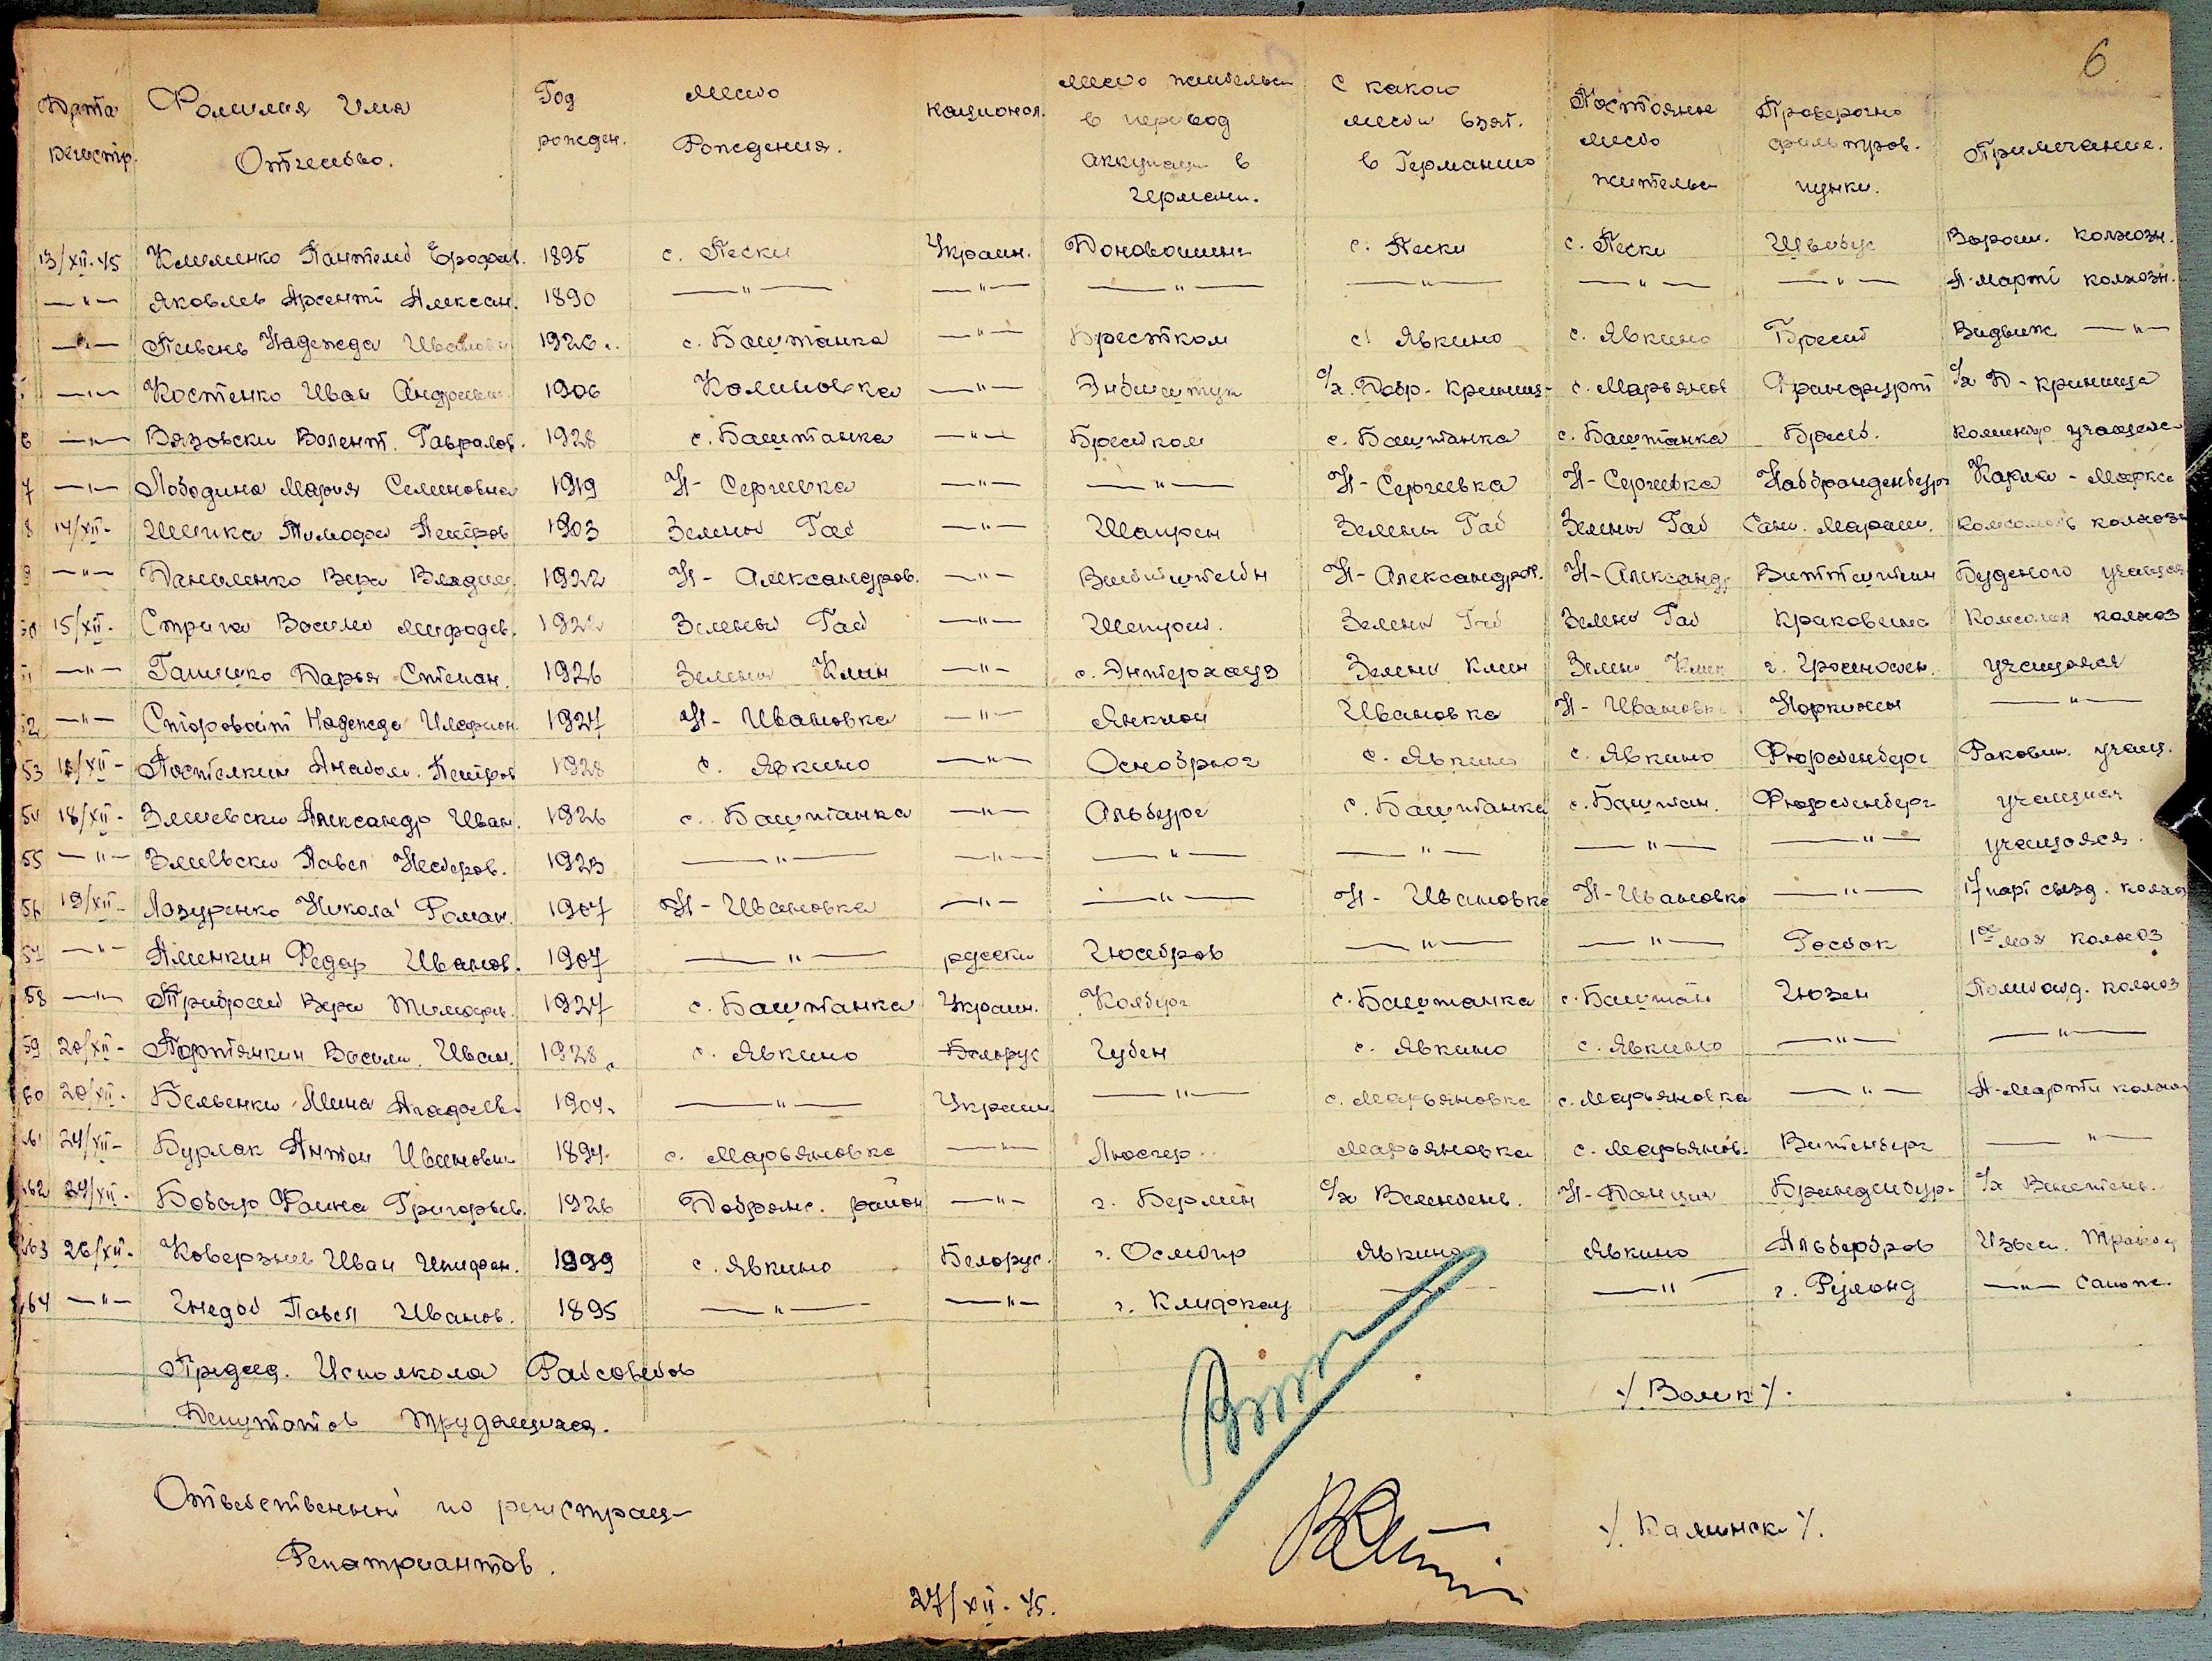 6
Дата регистр. Фамилия Имя Отчество. Год рожден. Место Рождения. национал. Место жительсв в период аккупаци в Герман. С какого места взят. в Германию Постоянне место жительсв Проверочно фильтров. пункт. Примечание.
13/XII-45 Клименко Пантелей Ерофеев. 1895 с. Пески Украин. с. Пески с. Пески Ворош. колхозн.
—"— Яковлев Арсенти Алексан. 1890 —"— —"— —"— —"— —"— —"— 8-Марті колхозн.
—"— Пивень Надежда Ивановн 1926. с. Баштанка —"— Брестком с. Явкино с. Явкино Брест —"—
—"— Костенко Иван Андреев. 1906 Калиновка —"— с/х. Добр. Криниц- с. Марьянов Франкфурт с/х Д-криница
6 —"— Вязовски Валент. Гаврилов. 1928 с. Баштанка —"— Брестком с. Баштанка с. Баштанка Брест. учащейся
7 —"— Лободина Мария Семеновна 1919 Н-Сергеевка —"— —"— Н-Сергеевка Н-Сергеевка Карла-Маркса
8 14/XII- Шишка Тимофей Петров 1903 Зелены Гай —"— Зелены Гай Зелены Гай колхозн
9 —"— Даниленко Вера Владим. 1922 Н-Александров. —"— Н-Александров. Н-Александр Виттштин Буденого учащая
50 15/XII- Стрига Васили Мифодев. 1922 Зелены Гай —"— Зелени Гай Зелени Гай Краковина Комсомол колхоз
51 —"— Гашенко Дарья Степан. 1926 Зелени Клин —"— с. Энтерхауз Зелени Клин Зелени Клин учащаяся
52 —"— Сторовойт Надежда Иларион. 1927 Н-Ивановка —"— Янкион Ивановка Н-Ивановка Норкинен —"—
53 18/XII- Постелкин Анатоли. Петров 1928 с. Явкино —"— Оснобрюг с. Явкино с. Явкино Фюрстенберг Раковин. учащ.
54 18/XII- Змиевски Александр Иван. 1926 с. Баштанка —"— Альбург с. Баштанка с. Баштан. Фюрстенберг учащися
55 —"— Змиевски Павел Нестеров. 1923 —"— —"— —"— —"— —"— —"— учащаяся.
56 19/XII- Лазуренко Никола Роман. 1907 Н-Ивановка —"— —"— Н-Ивановка Н-Ивановка —"— 17 парт сьезд. колхоз
57 —"— Аминкин Федор Иванов. 1907 —"— русски Гюстров —"— —"— Росток 1ое мая колхоз
58 —"— Вера Тимофев. 1927 с. Баштанка Украин. Колбург с. Баштанка с. Баштан Гюзен Политотд. колхоз
59 20/XII- Портянкин Васили. Иван. 1928. с. Явкино Белорус Губен с. Явкино с. Явкино —"— —"—
60 20/XII- Бельенки Мина 1904. —"— Украин —"— с. Марьяновка с. Марьяновка —"— 8-Марти колхоз
61 24/XII- Бурлак Антон Иванович 1894. с. Марьяновка —"— Люстер. Марьяновка с. Марьянов. Витенберг —"—
162 24/XII- Бобар Фаина Григорьев. 1926 Добрянс. район —"— г. Берлин с/х Н-Данциг Бранденбур. с/х
163 26/XII- Коверзнев Иван Епифан. 1899 с. Явкино Белорус. Явкино Явкино Альбертров
164 —"— Гнедой Павел Иванов. 1895 —"— —"— —"— —"— —"— Сапож.
Председ. Исполкома Райсоветов
Депутатов Трудящихся.
/. Волик /.
Ответственный по регистрац-
Репатриантов.
/. Калинск /.
27/XII-45.